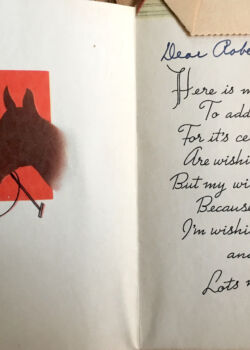 Dear Robe
Here is m
To add
For it's ce
Are wishi
But my wi
Because
I'm wishi
and
Lots m